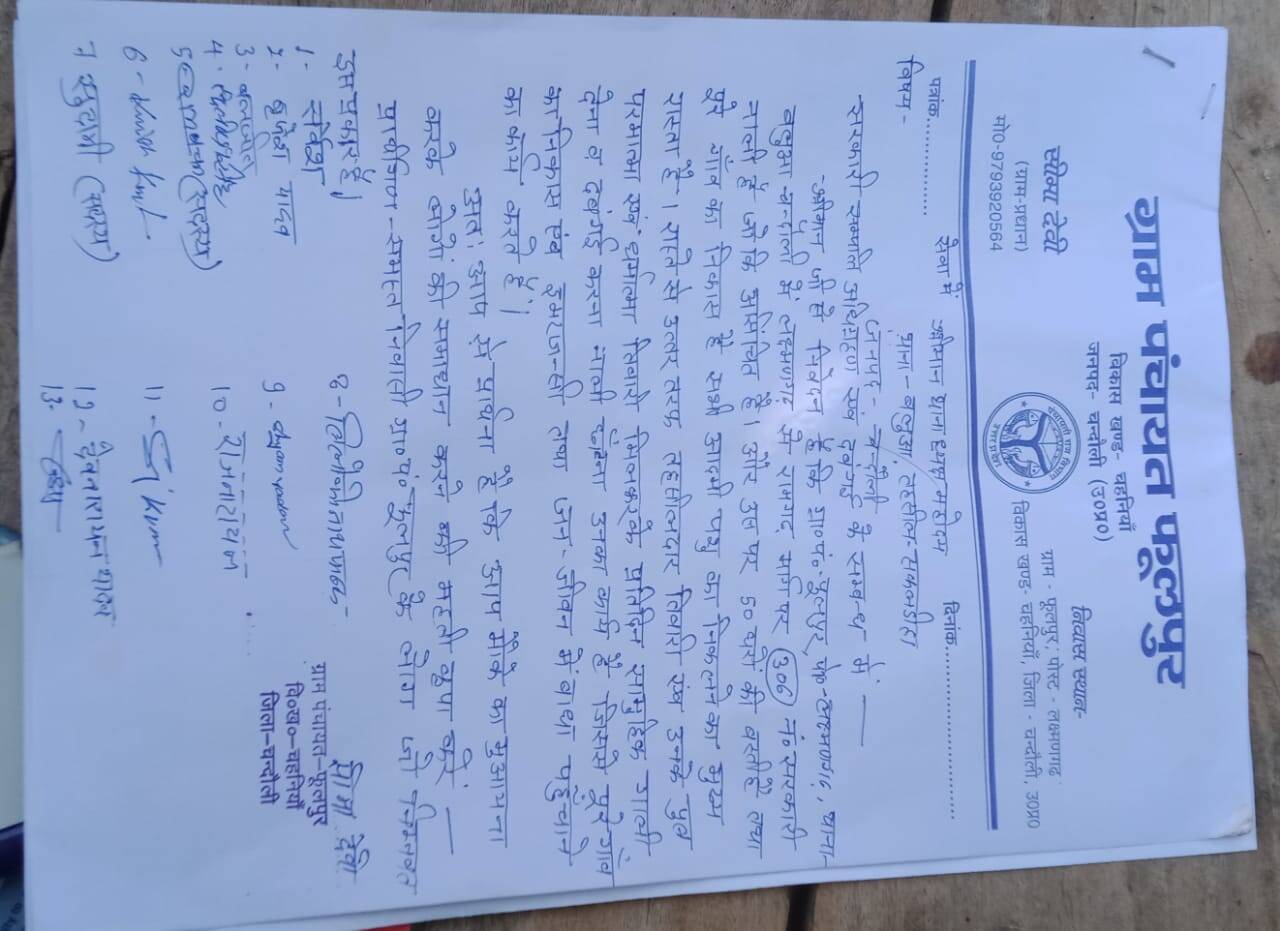 ग्राम पंचायत फूलपुर
विकास खण्ड- चहनियाँ
जनपद- चन्दौली (उ०प्र०)
सीमा देवी
(ग्राम-प्रधान)
मो०-9793920564
निवास स्थान-
ग्राम - फूलपुर, पोस्ट - लक्ष्मणगढ़
विकास खण्ड- चहनियाँ, जिला - चन्दौली, उ०प्र०
पत्रांक............ सेवा में श्रीमान थानाध्यक्ष महोदय दिनांक............
विषय - थाना- बलुआ, तहसील सकलडीहा
जनपद - चन्दौली
सरकारी सम्पत्ति अधिग्रहण एवं दबंगई के सम्बन्ध में —
श्रीमान जी से निवेदन है कि ग्रा० पं० फूलपुर, पो०-लक्ष्मणगढ़, थाना-
बलुआ चन्दौली में लक्ष्मणगढ़ से रामगढ़ मार्ग पर 306 नं० सरकारी
नाली है जो कि असिंचित है। और उस पर 50 घरो की बस्ती है तथा
पूरे गाँव का निकास है सभी आदमी पशु का निकलने का मुख्य
रास्ता है। रास्ते से उत्तर तरफ तहसीलदार तिवारी एंव उनके पुत्र
परमात्मा एंव धर्मात्मा तिवारी मिलकरके प्रतिदिन सामुहिक गाली
देना व दबंगई करना नाली उनका कार्य है जिससे पूरे गांव
का निकास एंव इमरजन्सी तथा जन-जीवन में बाधा पहुँचाने
का कार्य करते है।
अतः आप से प्रार्थना है कि आप मौके का मुआयना
करके लोगों की समाधान करने की महती कृपा करें —
प्रार्थीगण - समस्त निवासी ग्रा० पं० फूलपुर के लोग जो निम्नवत
इस प्रकार हैं।
1-
2- यादव
3-
4-
5 (सदस्य)
6-
7 (सदस्य)
8-
9- shyam yadav
10- राजनारायन
11-
12- देवनारायन यादव
13-
सीमा देवी
ग्राम पंचायत-फूलपुर
वि०ख०-चहनियाँ
जिला-चन्दौली